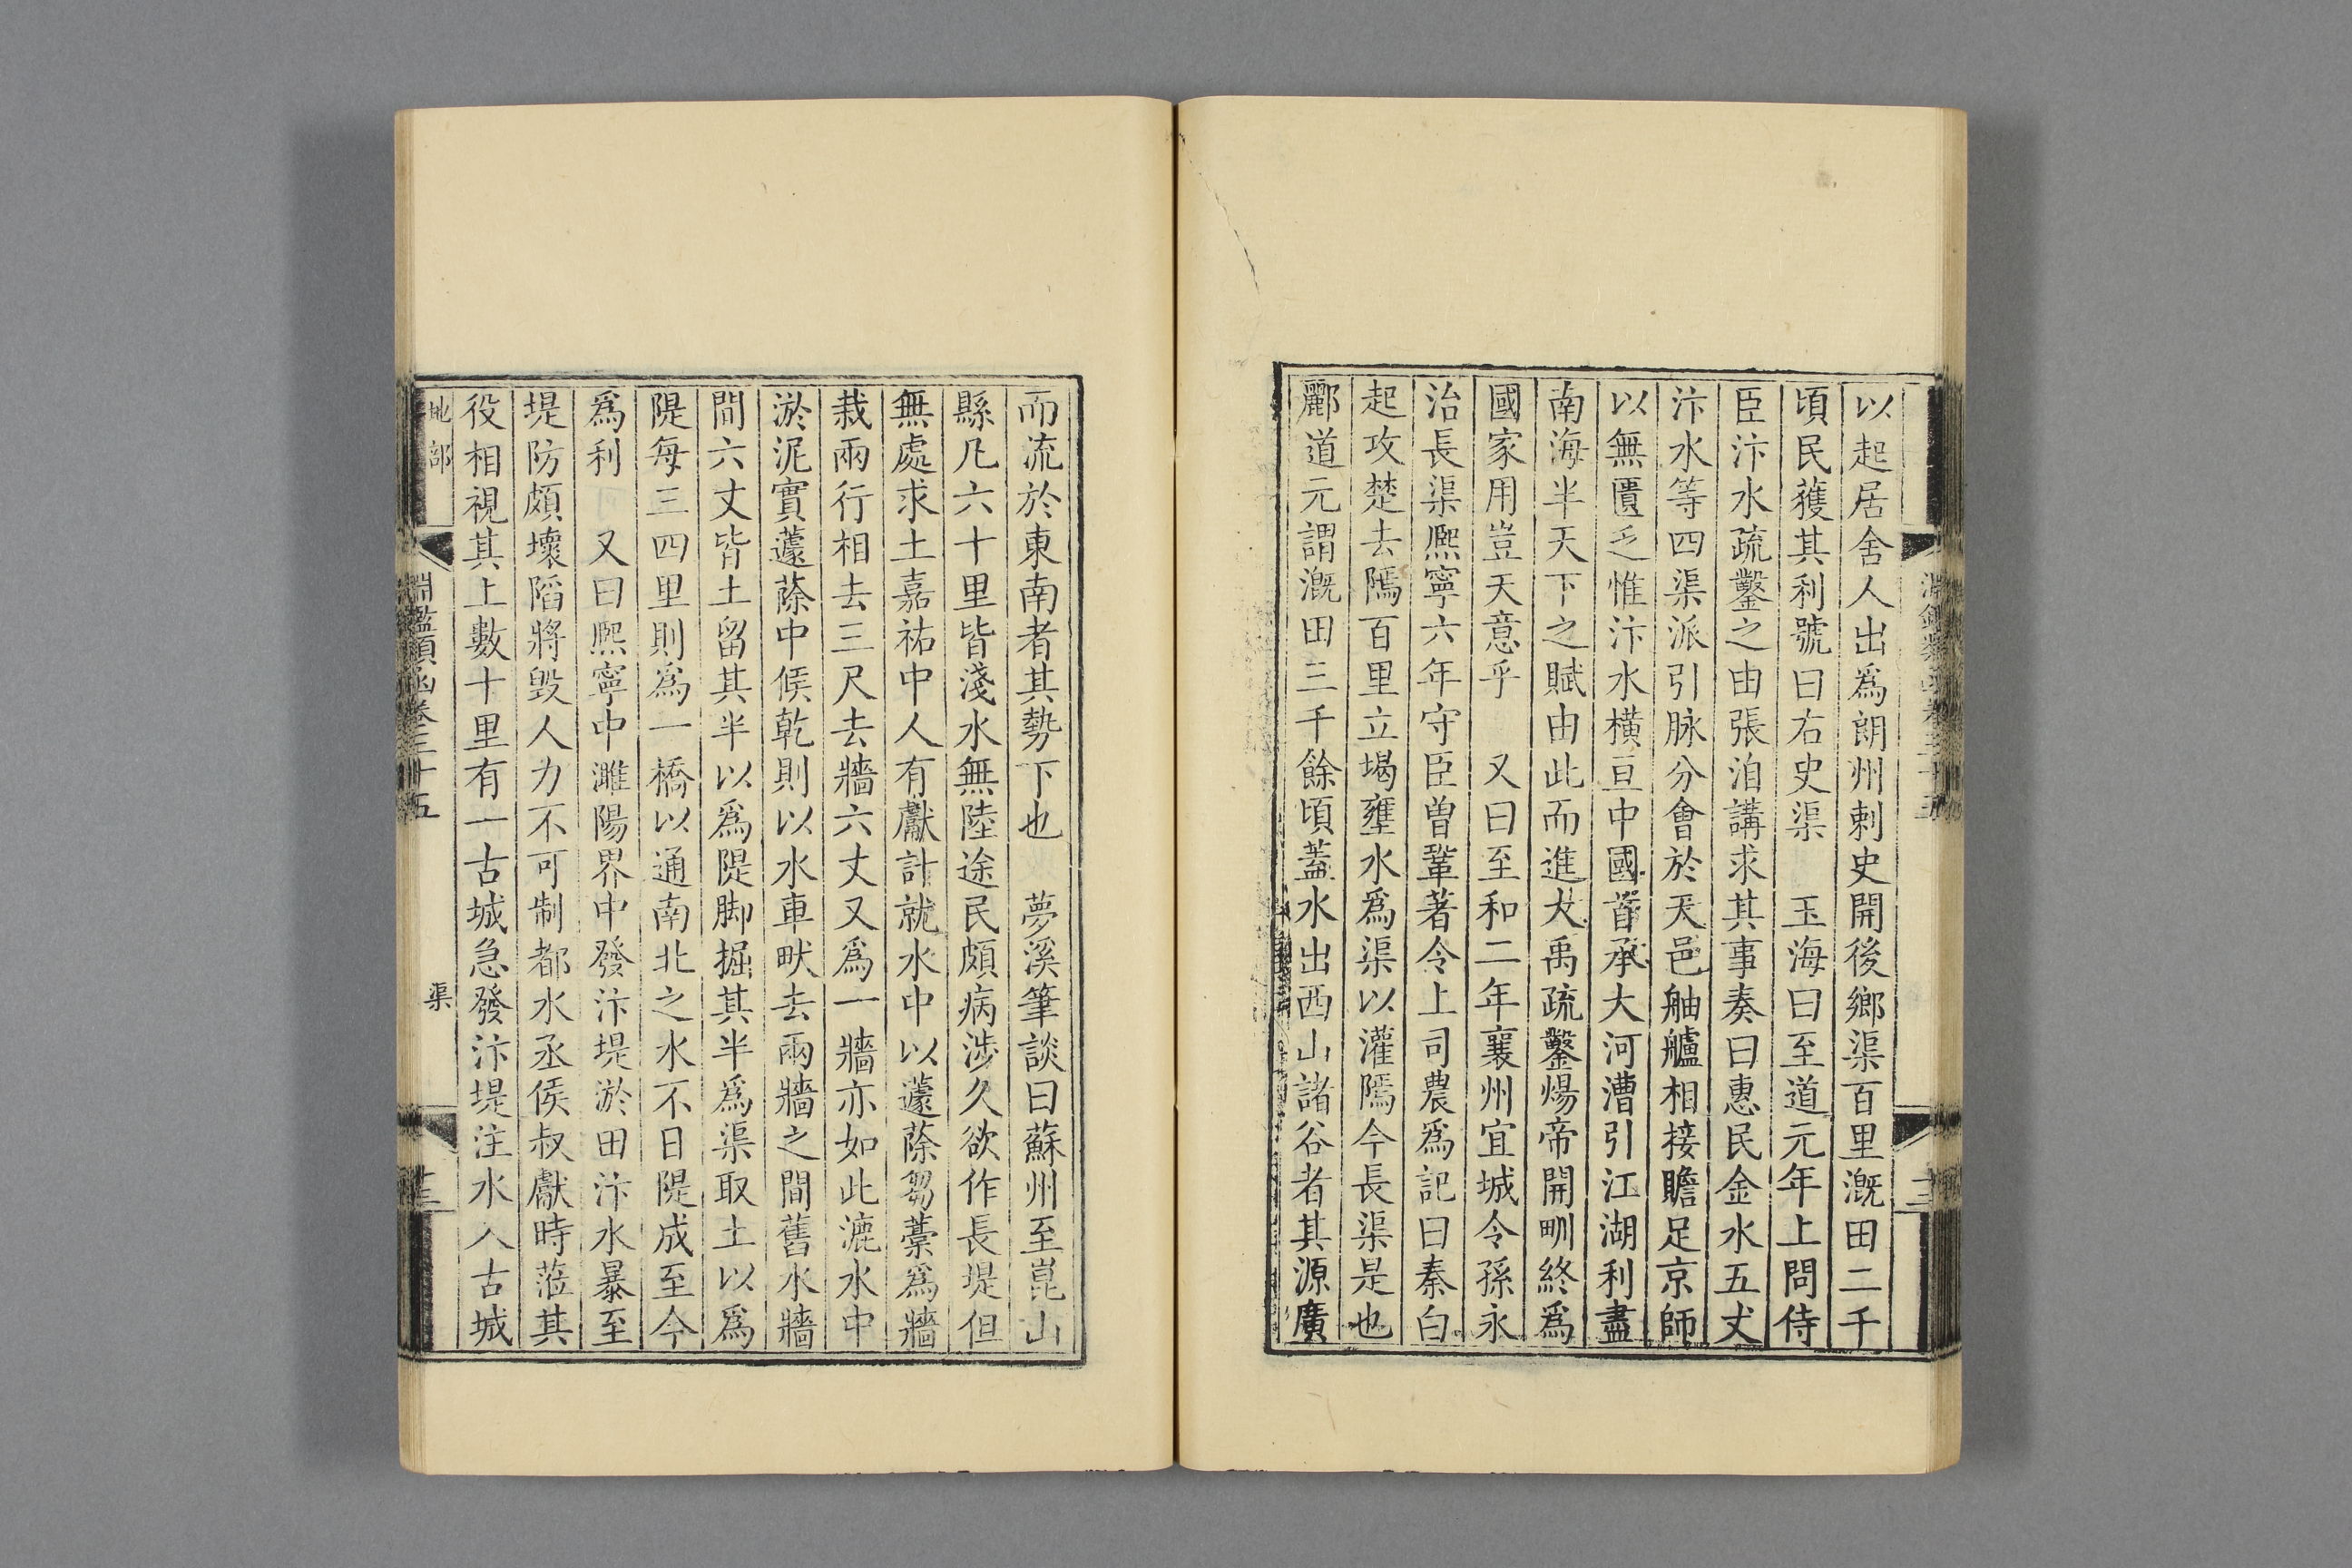 以起居舍人出爲朗州剌史開後鄉渠百里漑田二千
頃民蒦其利號曰右史渠　玉海曰至道元年上問侍
臣汴水疏鑿之由張洎講求其事奏曰惠民金水五丈
汴水等四渠派引脉分會於天邑舳艫相接贍足京師
以無匱乏惟汴水橫亘中國首承大河漕引江湖利盡
南海半天下之賦由此而進大禹疏鑿煬帝開甽終爲
國家用豈天意乎　又曰至和二年襄州宜城令孫永
治長渠熈寧六年守臣曽鞏著令上司農爲記曰秦白
起攻楚去隝百里立堨壅水爲渠以灌隝今長渠是也
酈道元謂漑田三千餘頃蓋水出西山諸谷者其源廣
而流於東南者其勢下也　夢溪筆談曰蘇州至崑山
縣凡六十里皆淺水無陸途民頗病涉久欲作長堤但
無處求土嘉祐中人有獻計就水中以蘧蒢芻藁爲牆
栽兩行相去三尺去牆六丈又爲一牆亦如此漉水中
淤泥實蘧蒢中候乾則以水車畎去兩牆之間舊水牆
間六丈皆土留其半以爲隄脚掘其半爲渠取土以爲
隄每三四里則爲一橋以通南北之水不日隄成至今
爲利　又曰熈寧中濉陽界中發汴堤淤田汴水暴至
堤防頗壞䧟將毀人力不可制都水丞侯叔獻時蒞其
役相視其上數十里有一古城急發汴堤注水入古城
地部
淵鑑類函卷三十五
渠
十三